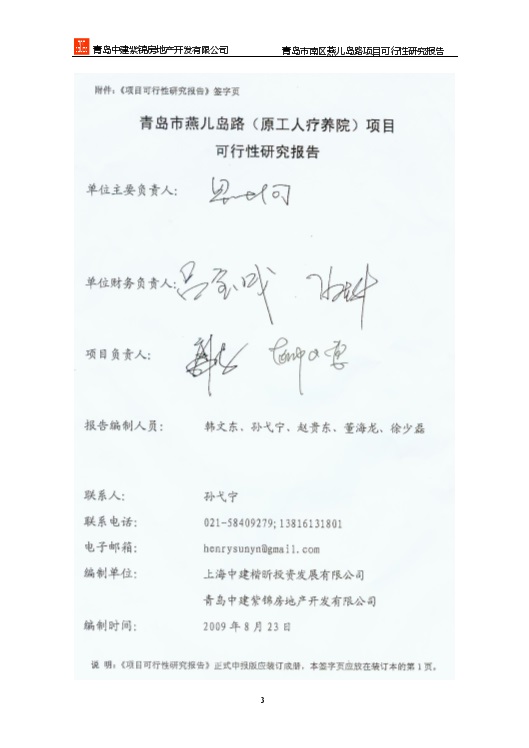 青岛中建紫锦房地产开发有限公司 青岛市南区燕儿岛路项目可行性研究报告
附件:《项目可行性研究报告》签字页
青岛市燕儿岛路(原工人疗养院)项目
可行性研究报告
单位主要负责人:
单位财务负责人:
项目负责人:
报告编制人员: 韩文东、孙戈宁、赵贵东、董海龙、徐少磊
联系人: 孙戈宁
联系电话: 021-58409279;13816131801
电子邮箱: henrysunyn@gmail.com
编制单位: 上海中建楷昕投资发展有限公司
青岛中建紫锦房地产开发有限公司
编制时间: 2009年8月23日
说 明:《项目可行性研究报告》正式申报版应装订成册,本签字页应放在装订本的第1页。
3